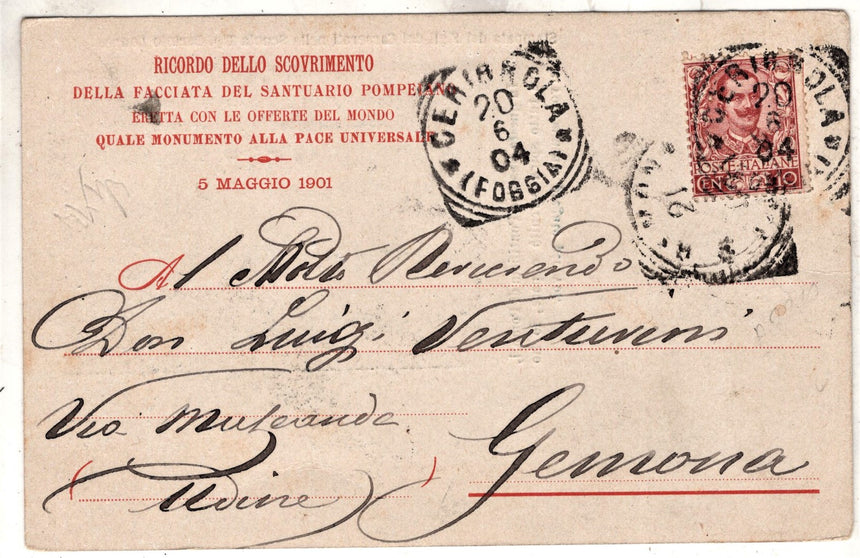 RICORDO DELLO SCOVRIMENTO
DELLA FACCIATA DEL SANTUARIO POMPEIANO
ERETTA CON LE OFFERTE DEL MONDO
QUALE MONUMENTO ALLA PACE UNIVERSALE
5 MAGGIO 1901
CERIGNOLA
20
6
04
(FOGGIA)
CERIGNOLA
20
6
04
POSTE ITALIANE
CENT. 10
21
Al Molto Reverendo
Don Luigi Venturini
Via
Gemona
(Udine)